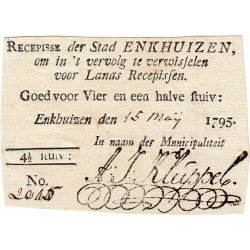 RECEPISSE der Stad ENKHUIZEN,
om in 't vervolg te verwisselen
voor Lands Recepissen.
Goed voor Vier en een halve stuiv:
Enkhuizen den 15 Maij 1795.
In naam der Municipaliteit
4½ stuiv:
A. J. Kluppel.
No.
2015